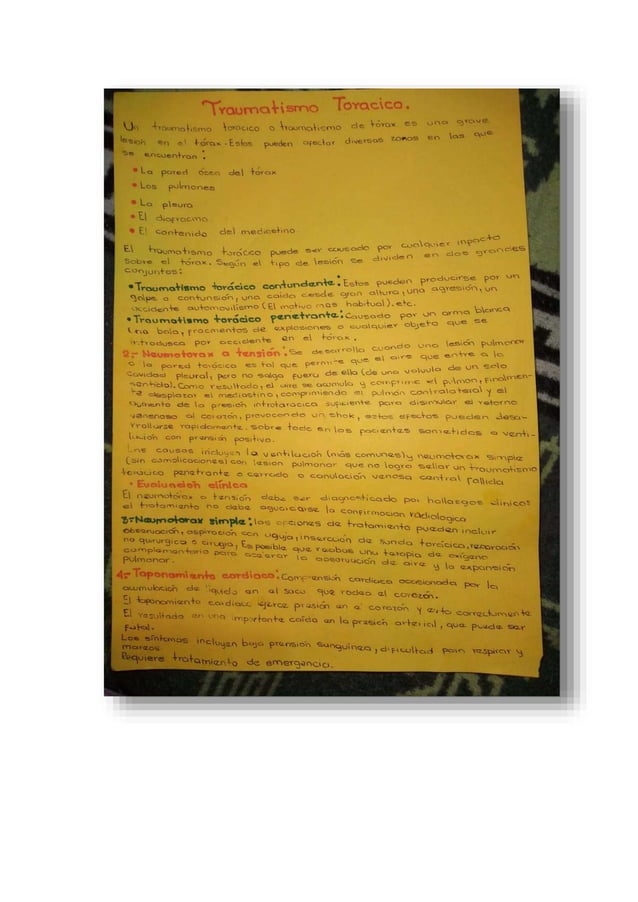 Traumatismo Toracico.
Un traumatismo toracico o traumatismo de tórax es una grave
lesion en el tórax. Estos pueden afectar diversas zonas en las que
se encuentran:
• La pared ósea del tórax
• Los pulmones
• La pleura
• El diafracma.
• El contenido del mediastino.
El traumatismo torácico puede ser causado por cualquier inpacto
sobre el tórax. Según el tipo de lesión se dividen en dos grandes
conjuntos:
• Traumatismo torácico contundente: Estos pueden producirse por un
golpe o contunsión, una caida desde gran altura, una agresión, un
accidente automovilismo (El motivo mas habitual). etc.
• Traumatismo torácico penetrante: Causado por un arma blanca
una bala, fracmentos de explosiones o cualquier objeto que se
introdusca por accidente en el tórax.
2.- Neumotorax a tensión: Se desarrolla cuando una lesión pulmonar
o la pared torácica es tal que permite que el aire que entre a la
cavidad pleural, pero no salga fuera de ella (de una valvula de un solo
sentido). Como resultado, el aire se acumula y comprime el pulmon, finalmen-
te desplazar el mediastino, comprimiendo el pulmón contralateral y el
aumento de la presión intratoracica suficiente para disminuir el retorno
venenoso al corazón, provocando un shok, estos efectos pueden desa-
rrollarse rapidamente. sobre todo en los pacientes sometidos a venti-
lación con presión positiva.
Las causas incluyen la ventilación (más comunes) y neumotorax simple
(sin complicaciones) con lesion pulmonar que no logra sellar un traumatismo
toracico penetrante o cerrado o canulación venosa central fallida
• Evaluación clínica
El neumotórax a tensión debe ser diagnosticado por hallazgos clinicos
el tratamiento no debe aguardarse la confirmacion radiologica
3-Neumotorax simple: las opciones de tratamiento pueden incluir
observación, aspiración con aguja, insercción de sunda torácica, reparación
no quirurgica o cirugia, Es posible que recibas una terapia de oxígeno
complementario para acelerar la absorución de aire y la expansión
pulmonar.
4.- Taponamiento cardiaco: Comprensión cardiaca ocasionada por la
acumulación de líquido en el saco que rodea el corazón.
El taponamiento cardiaco ejerce presión en el corazón y correctamente
El resultado en una importante caída en la presión arterial, que puede ser
fatal.
Los síntomas incluyen baja prensión sanguínea, dificultad para respirar y
mareos
Requiere tratamiento de emergencia.